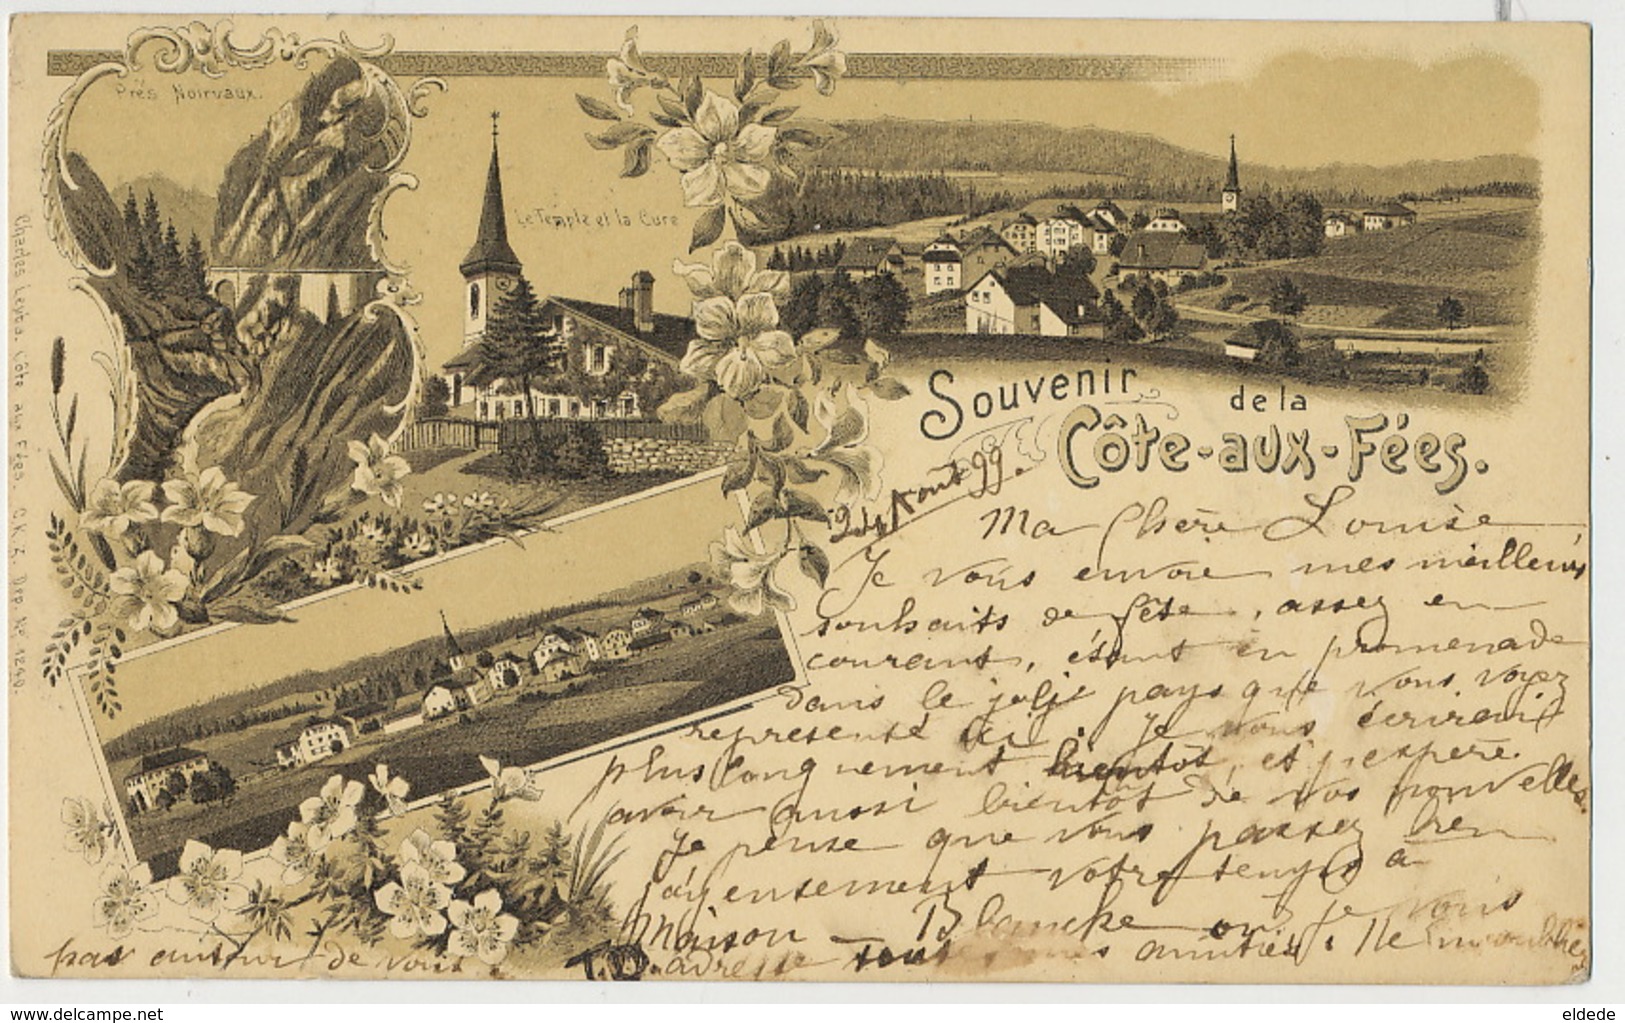 Près Noirvaux.
Le Temple et la Cure
Souvenir de la
Côte-aux-Fées.
Charles Leyba. Côte aux Fées. C.K.Z. Dep. Nº 1240
24 Aout 99.
Ma Chère Louise
Je vous envoie mes meilleurs
souhaits de fête, assez en
courant, étant en promenade
dans le joli pays que vous voyez
representé ici. Je vous écrirai
plus longuement bientôt, et j'espère
avoir aussi bientôt de vos nouvelles.
Je pense que vous passez bien
joyeusement votre temps à
Maison Blanche où je vous
adresse tous mes amitiés. Ne m'oubliez
pas autour de vous
T.D.
delcampe.net
eldede